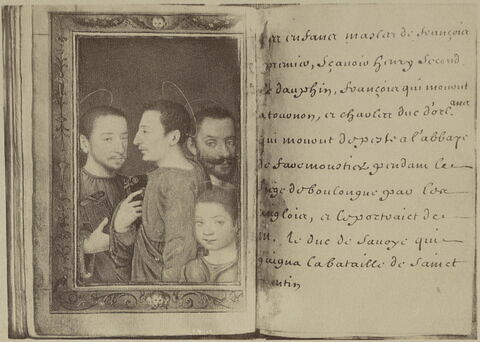 les enfans masles de François
premier, Sçauoir Henry Second
le dauphin, François qui mourut
a tournon, et charles duc d'orleans
qui mourut de peste a l'abbaye
de faremoustier pendant le
siege de boulongne par les
anglois, et le portraict de
m. le duc de Sauoye qui
gaigna la bataille de Sainct
quentin